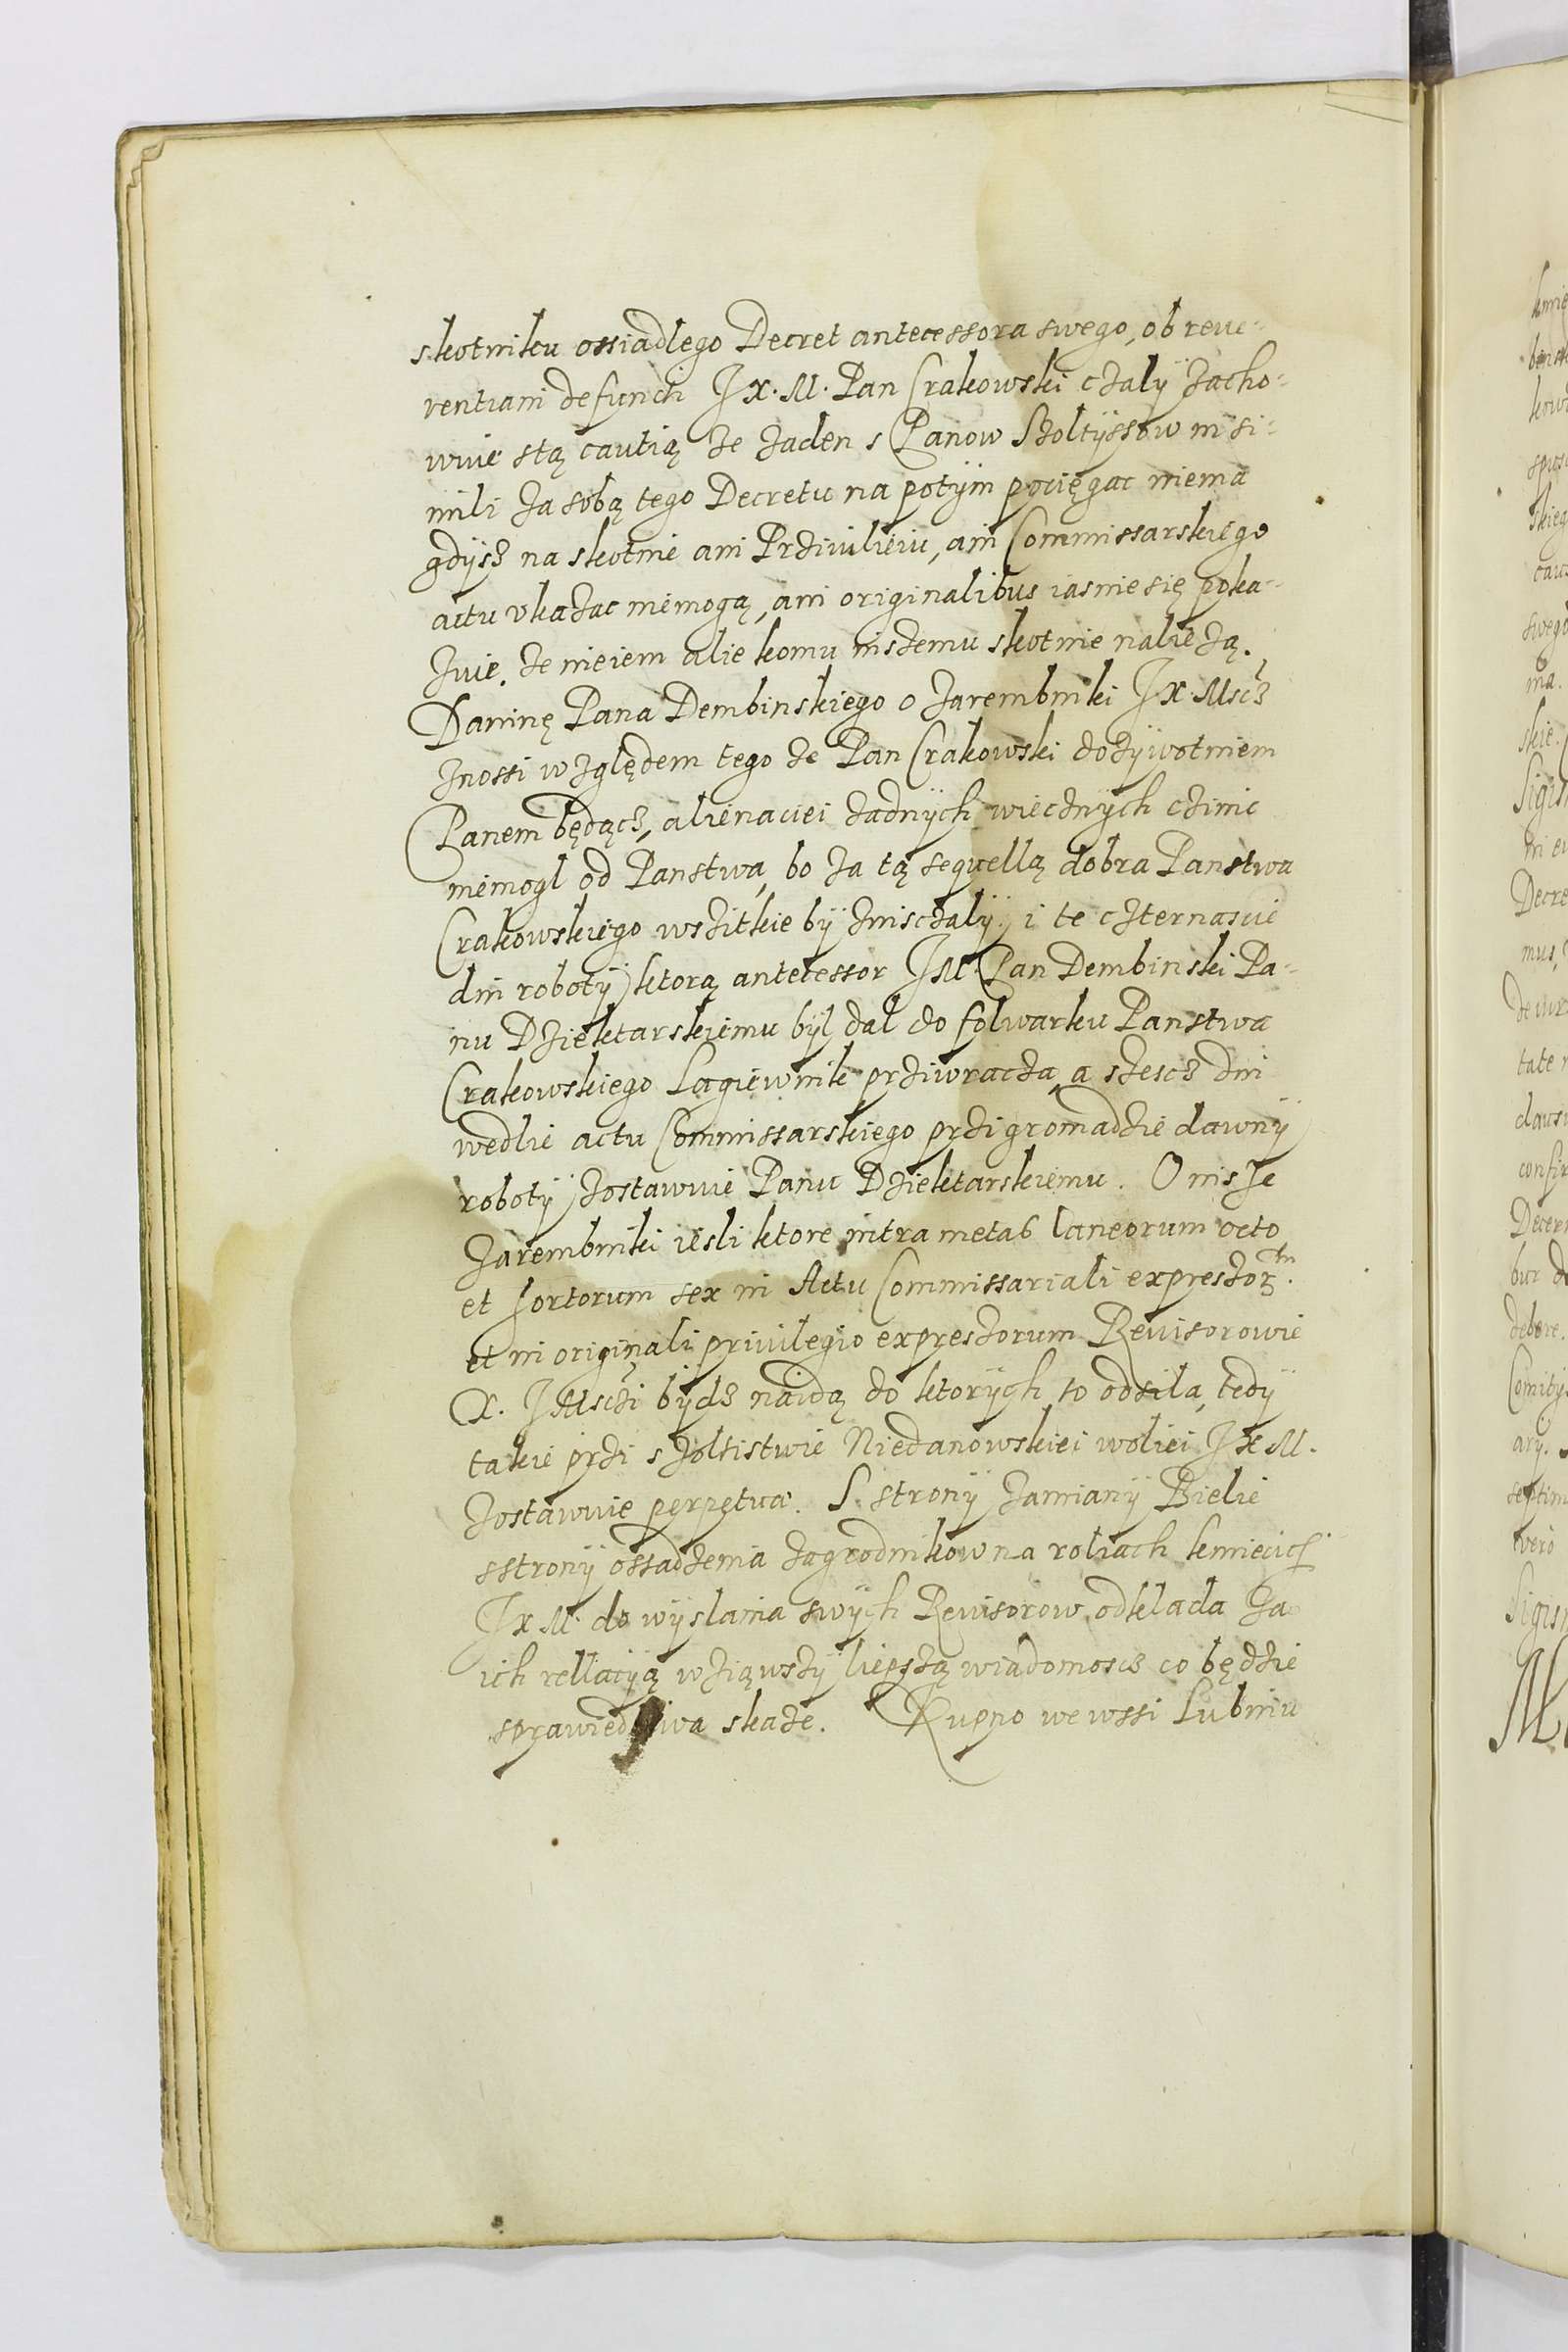 skotniku ossiadlego Decret antecessora swego, ob reue-
rentiam defuncti J X. M. Pan Crakowski czaly zacho-
wuie stą cautią ze zaden s Panow Szoltyssow in si-
mili za sobą tego Decretu na potym pocięgac niema
gdysz na skotnie ani Prziuilieiu, ani Commissarskiego
actu vkazac niemogą, ani originalibus iasnie się poka-
zuie. ze nieiem alie komu inszemu skotnie nalieżą.
Daninę Pana Dembinskiego o Zarembniki J X Mscz
znossi względem tego ze Pan Crakowski dozywotniem
Panem będącz, alienaciei zadnych wiecznych czinic
niemogl od Panstwa, bo za tą sequellą dobra Panstwa
Crakowskiego wszitkie by zniszczaly. i te czternascie
dni roboty ktorą antecessor JM. Pan Dembinski Pa-
nu Dziektarskiemu byl dal do folwarku Panstwa
Crakowskiego Lagiewnik prziwracza, a szescz dni
wedlie actu Commissarskiego przi gromadzie dawny
roboty zostawuie Panu Dziektarskiemu. O insze
Zarembniki iesli ktore intra metas laneorum octo
et sortorum sex in Actu Commissariali expressoz tn.
et in originali priuilegio expressorum Reuisorowie
X. JMsczi bydz naidą do ktorych to odsila, tedy
takie przi szoltistwie Niedanowskiei woliei J X M.
zostawuie perpetua. S strony zamiany Bielie
sstrony ossadzenia zagrodnikow na roliach kmiecich
J X M. do wyslania swych Reuisorow odklada za
ich rellacyą wziąwszy liepszą wiadomoscz co będzie
sprawiedliwa skaze. Kupno we wssi Lubniu